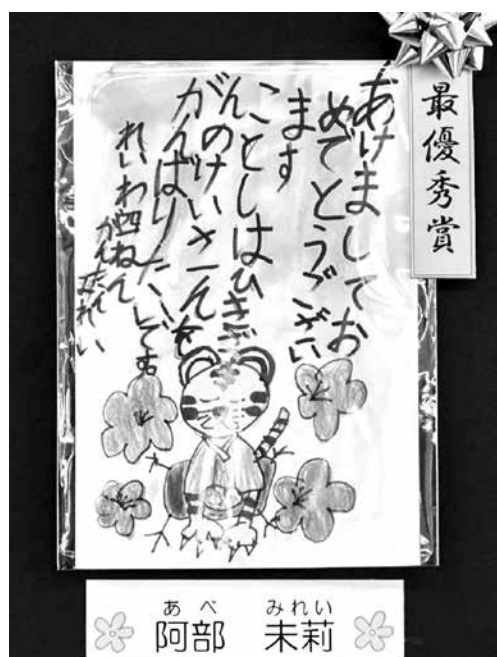 最優秀賞
あけましてお
めでとうござい
ます
ことしはひきざ
んのけいさんを
がんばりたいです。
れいわ四ねん
がんたん みれい
あべ みれい
阿部 未莉